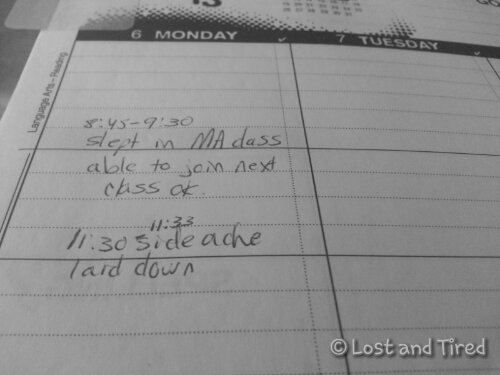 6 MONDAY
7 TUESDAY
Language Arts – Reading
8:45-9:30
slept in MA class
able to join next
class ok.
11:33
11:30 side ache
laid down
© Lost and Tired